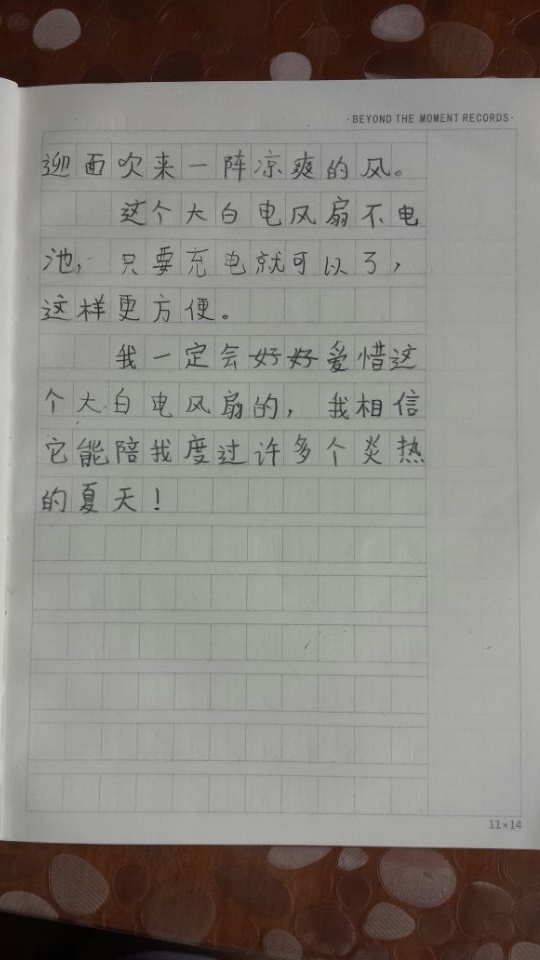 ·BEYOND THE MOMENT RECORDS·
迎面吹来一阵凉爽的风。
这个大白电风扇不电
池，只要充电就可以了，
这样更方便。
我一定会好好爱惜这
个大白电风扇的，我相信
它能陪我度过许多个炎热
的夏天！
11×14